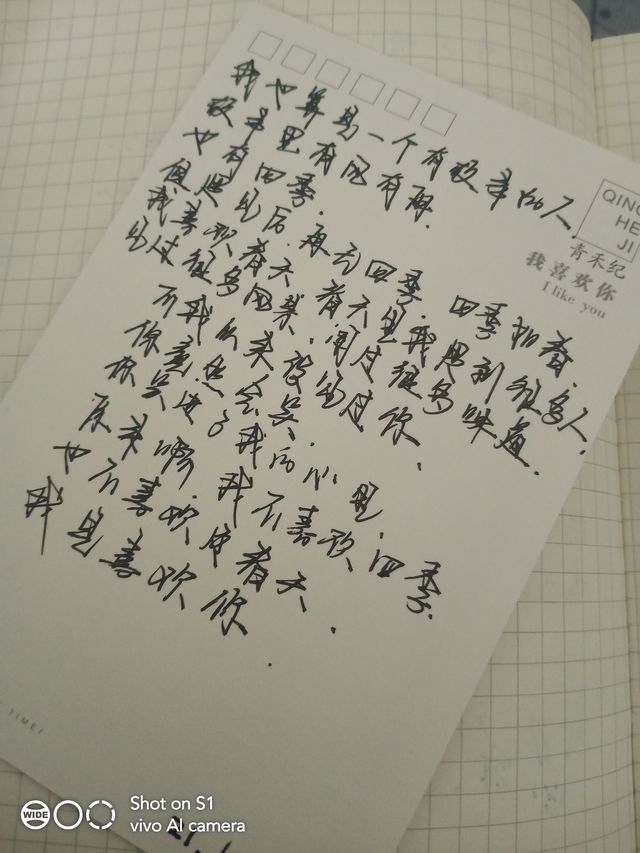 我也算是一个有故事的人.
故事里有风有雨.
也有四季.
但是笔后.再无四季.四季和春.
我喜欢春天 春天里我遇到很多人.
见过很多风景.闻过很多味道.
而我从来没见过你.
你竟然会哭.
你哭进了我的心里.
原来啊.我不喜欢四季.
也不喜欢春天.
我是喜欢你.
QING
HE
JI
青禾纪
我喜欢你
I like you
TIME/
WIDE
Shot on S1
vivo AI camera